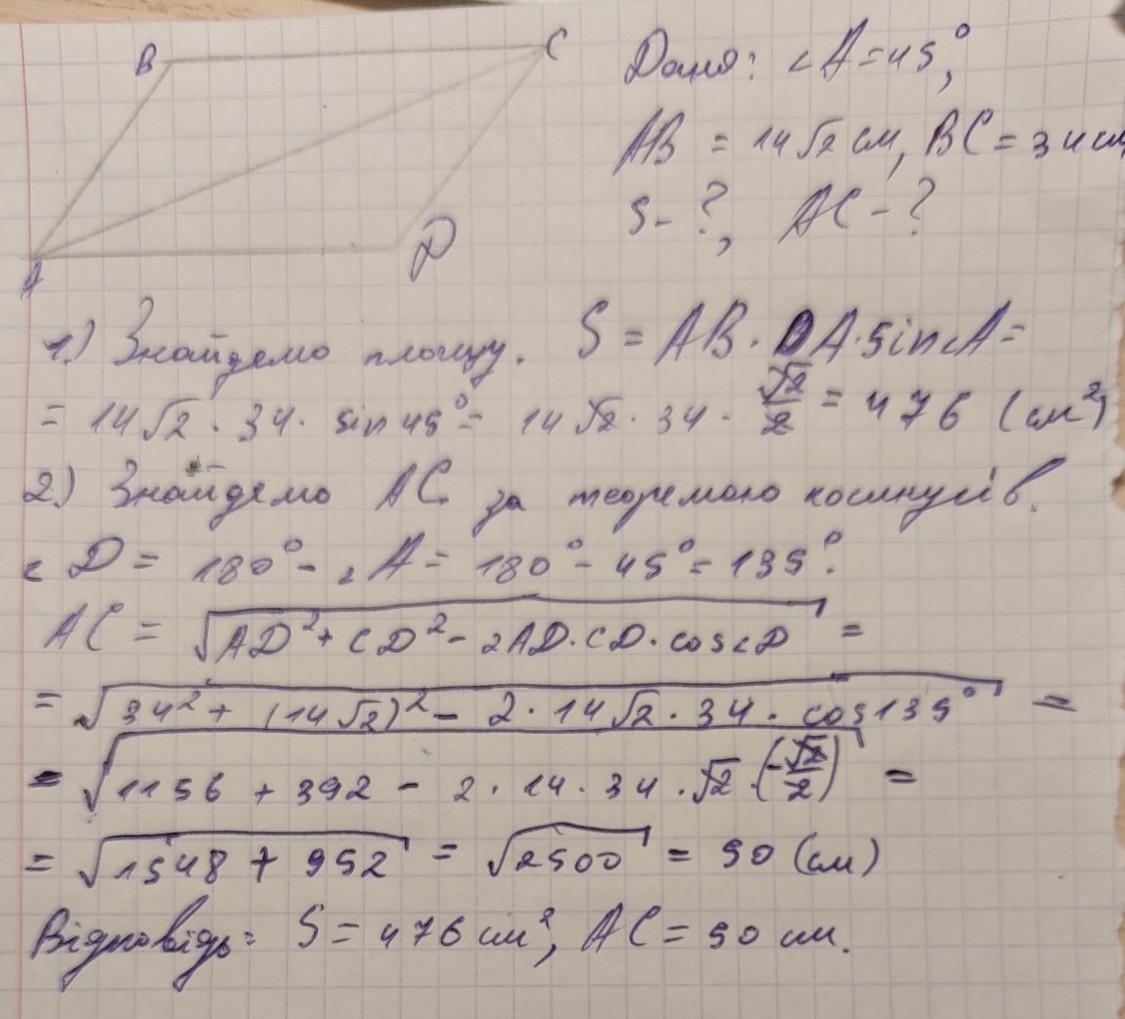 B
C
Даня: ∠A = 45°,
AB = 14√2 см, BC = 34 см
S - ?, AC - ?
A
D
1.) Знайдемо площу. S = AB · DA · sin∠A =
= 14√2 · 34 · sin 45° = 14√2 · 34 · √2/2 = 476 (см²)
2.) Знайдемо AC за теоремою косинусів.
∠D = 180° - ∠A = 180° - 45° = 135°.
AC = √(AD² + CD² - 2AD · CD · cos∠D) =
= √(34² + (14√2)² - 2 · 14√2 · 34 · cos135°) =
= √(1156 + 392 - 2 · 14 · 34 · √2 · (-√2/2)) =
= √(1548 + 952) = √2500 = 50 (см)
Відповідь: S = 476 см², AC = 50 см.